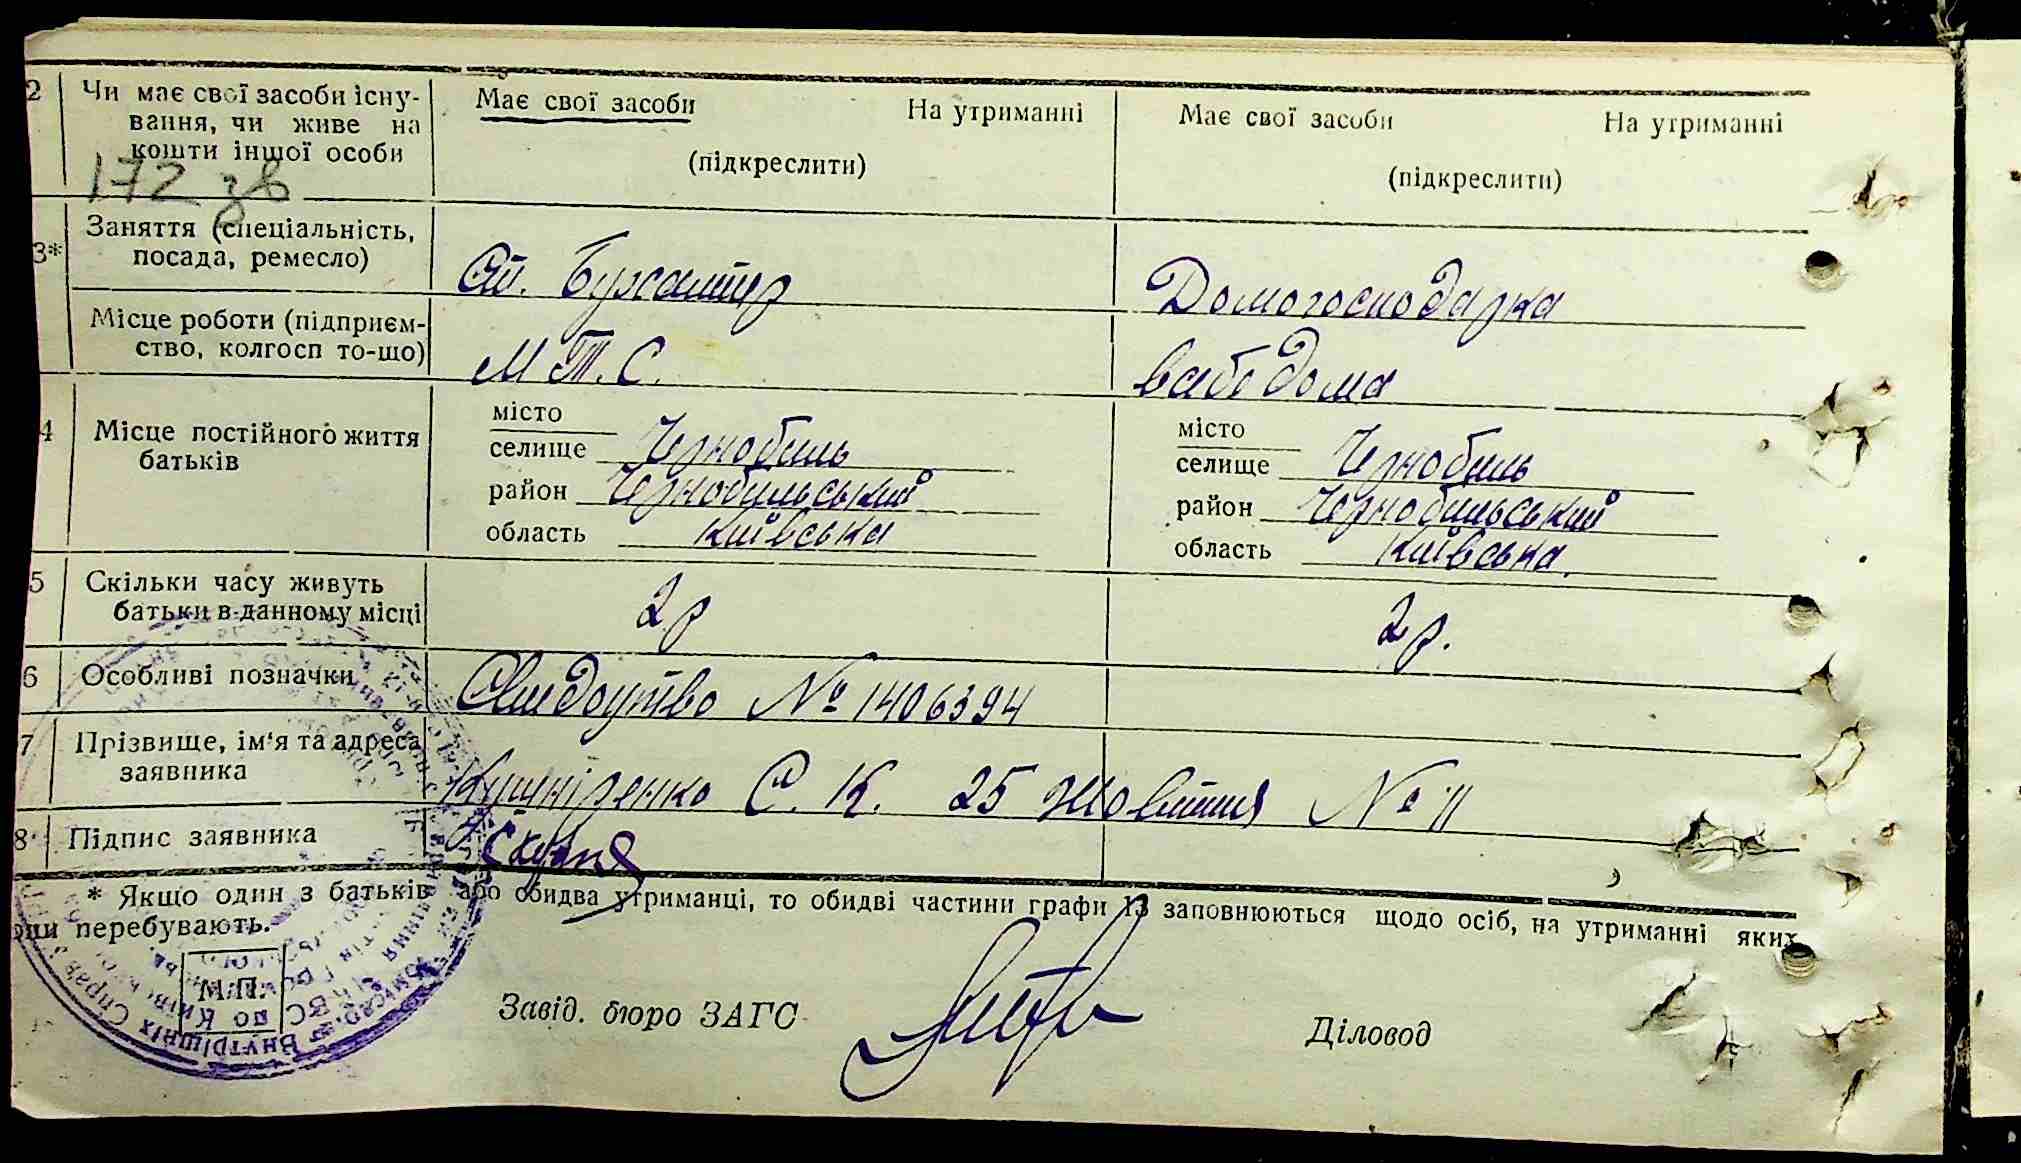 2 Чи має свої засоби існу- Має свої засоби На утриманні Має свої засоби На утриманні
вання, чи живе на
кошти іншої особи (підкреслити) (підкреслити)
172 зв
3* Заняття (спеціальність,
посада, ремесло) Ст. Бухалтер Домогосподарка
Місце роботи (підприєм-
ство, колгосп то-що) М.Т.С. вабо дома
4 Місце постійного життя місто місто
батьків селище Чернобиль селище Чернобиль
район Чернобильський район Чернобильський
область Київська область Київська
5 Скільки часу живуть
батьки в данному місці 2 р 2 р.
6 Особливі позначки Свидоцтво № 1406394
7 Прізвище, ім'я та адреса
заявника Кушніренко С. К. 25 Жовтня № 11
8 Підпис заявника
* Якщо один з батьків або обидва утриманці, то обидві частини графи 13 заповнюються щодо осіб, на утриманні яких
они перебувають.
М.П.
Завід. бюро ЗАГС Діловод